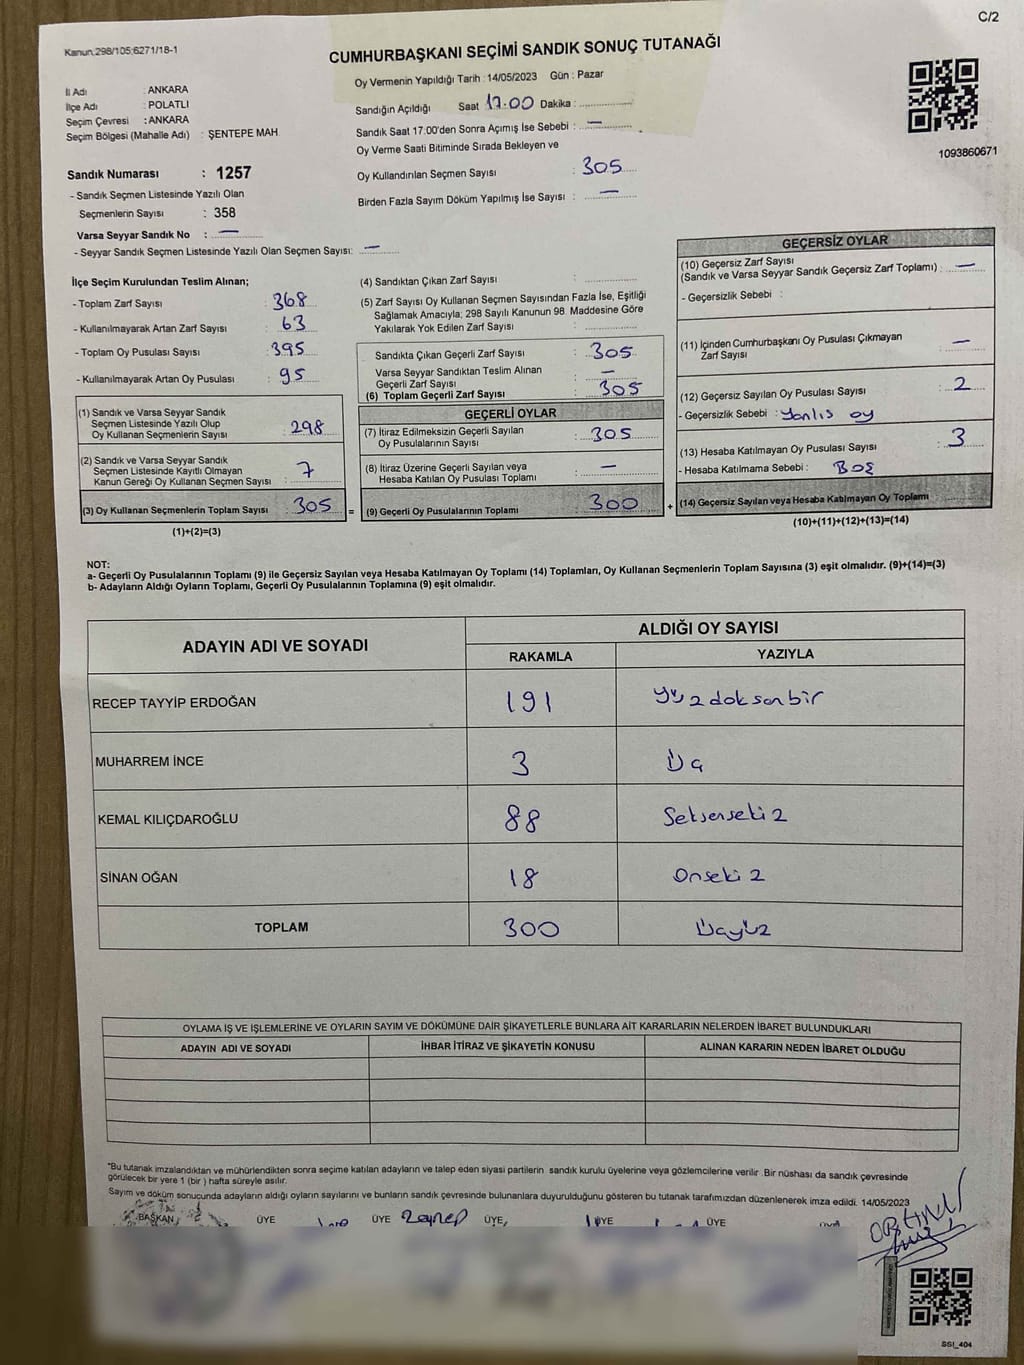 C/2
Kanun.298/105;6271/18-1
CUMHURBAŞKANI SEÇİMİ SANDIK SONUÇ TUTANAĞI
Oy Vermenin Yapıldığı Tarih : 14/05/2023 Gün : Pazar
İl Adı : ANKARA
İlçe Adı : POLATLI
Seçim Çevresi : ANKARA
Seçim Bölgesi (Mahalle Adı) : ŞENTEPE MAH.
Sandığın Açıldığı Saat 17.00 Dakika :
Sandık Saat 17:00'den Sonra Açımış İse Sebebi : —
Oy Verme Saati Bitiminde Sırada Bekleyen ve
Oy Kullandırılan Seçmen Sayısı : 305
Birden Fazla Sayım Döküm Yapılmış İse Sayısı : —
1093860671
Sandık Numarası : 1257
- Sandık Seçmen Listesinde Yazılı Olan
Seçmenlerin Sayısı : 358
Varsa Seyyar Sandık No : —
- Seyyar Sandık Seçmen Listesinde Yazılı Olan Seçmen Sayısı: —
İlçe Seçim Kurulundan Teslim Alınan;
- Toplam Zarf Sayısı : 368
- Kullanılmayarak Artan Zarf Sayısı : 63
- Toplam Oy Pusulası Sayısı : 395
- Kullanılmayarak Artan Oy Pusulası : 95
(1) Sandık ve Varsa Seyyar Sandık
Seçmen Listesinde Yazılı Olup
Oy Kullanan Seçmenlerin Sayısı : 298
(2) Sandık ve Varsa Seyyar Sandık
Seçmen Listesinde Kayıtlı Olmayan
Kanun Gereği Oy Kullanan Seçmen Sayısı : 7
(3) Oy Kullanan Seçmenlerin Toplam Sayısı : 305 =
(1)+(2)=(3)
(4) Sandıktan Çıkan Zarf Sayısı :
(5) Zarf Sayısı Oy Kullanan Seçmen Sayısından Fazla İse, Eşitliği
Sağlamak Amacıyla; 298 Sayılı Kanunun 98. Maddesine Göre
Yakılarak Yok Edilen Zarf Sayısı :
Sandıkta Çıkan Geçerli Zarf Sayısı : 305
Varsa Seyyar Sandıktan Teslim Alınan
Geçerli Zarf Sayısı : —
(6) Toplam Geçerli Zarf Sayısı : 305
GEÇERLİ OYLAR
(7) İtiraz Edilmeksizin Geçerli Sayılan
Oy Pusulalarının Sayısı : 305
(8) İtiraz Üzerine Geçerli Sayılan veya
Hesaba Katılan Oy Pusulalarının Toplamı : —
(9) Geçerli Oy Pusulalarının Toplamı : 300 +
GEÇERSİZ OYLAR
(10) Geçersiz Zarf Sayısı
(Sandık ve Varsa Seyyar Sandık Geçersiz Zarf Toplamı) : —
- Geçersizlik Sebebi :
(11) İçinden Cumhurbaşkanı Oy Pusulası Çıkmayan
Zarf Sayısı : —
(12) Geçersiz Sayılan Oy Pusulası Sayısı : 2
- Geçersizlik Sebebi : Yanlıs oy
(13) Hesaba Katılmayan Oy Pusulası Sayısı : 3
- Hesaba Katılmama Sebebi : Boş
(14) Geçersiz Sayılan veya Hesaba Katılmayan Oy Toplamı
(10)+(11)+(12)+(13)=(14)
NOT:
a- Geçerli Oy Pusulalarının Toplamı (9) ile Geçersiz Sayılan veya Hesaba Katılmayan Oy Toplamı (14) Toplamları, Oy Kullanan Seçmenlerin Toplam Sayısına (3) eşit olmalıdır. (9)+(14)=(3)
b- Adayların Aldığı Oyların Toplamı, Geçerli Oy Pusulalarının Toplamına (9) eşit olmalıdır.
ADAYIN ADI VE SOYADI ALDIĞI OY SAYISI
RAKAMLA YAZIYLA
RECEP TAYYİP ERDOĞAN 191 Yüzdoksanbir
MUHARREM İNCE 3 Üç
KEMAL KILIÇDAROĞLU 88 Seksensekiz
SİNAN OĞAN 18 Onsekiz
TOPLAM 300 Üçyüz
OYLAMA İŞ VE İŞLEMLERİNE VE OYLARIN SAYIM VE DÖKÜMÜNE DAİR ŞİKAYETLERLE BUNLARA AİT KARARLARIN NELERDEN İBARET BULUNDUKLARI
ADAYIN ADI VE SOYADI İHBAR İTİRAZ VE ŞİKAYETİN KONUSU ALINAN KARARIN NEDEN İBARET OLDUĞU
"Bu tutanak imzalandıktan ve mühürlendikten sonra seçime katılan adayların ve talep eden siyasi partilerin sandık kurulu üyelerine veya gözlemcilerine verilir .Bir nüshası da sandık çevresinde
görülecek bir yere 1 (bir ) hafta süreyle asılır.
Sayım ve döküm sonucunda adayların aldığı oyların sayılarını ve bunların sandık çevresinde bulunanlara duyurulduğunu gösteren bu tutanak tarafımızdan düzenlenerek imza edildi. 14/05/2023
BAŞKAN ÜYE ÜYE Zeynep ÜYE, ÜYE ÜYE
SSI_404